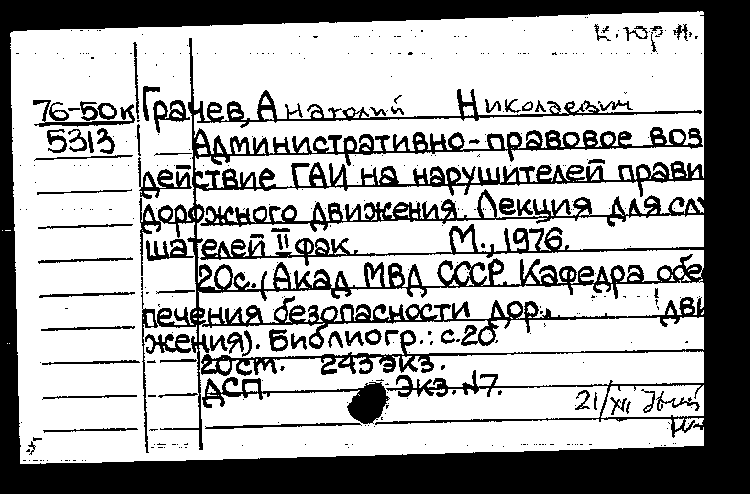 К. Юр Н.
76-50к Грачев, Анатолий Николаевич
5313 Административно-правовое воз
действие ГАИ на нарушителей прави
дорожного движения. Лекция для слу
шателей II фак. М., 1976.
20с. (Акад. МВД СССР. Кафедра обе
печения безопасности дор. дви
жения). Библиогр.: с.20
20ст. 243экз.
ДСП. Экз. №7.
21/XII
5